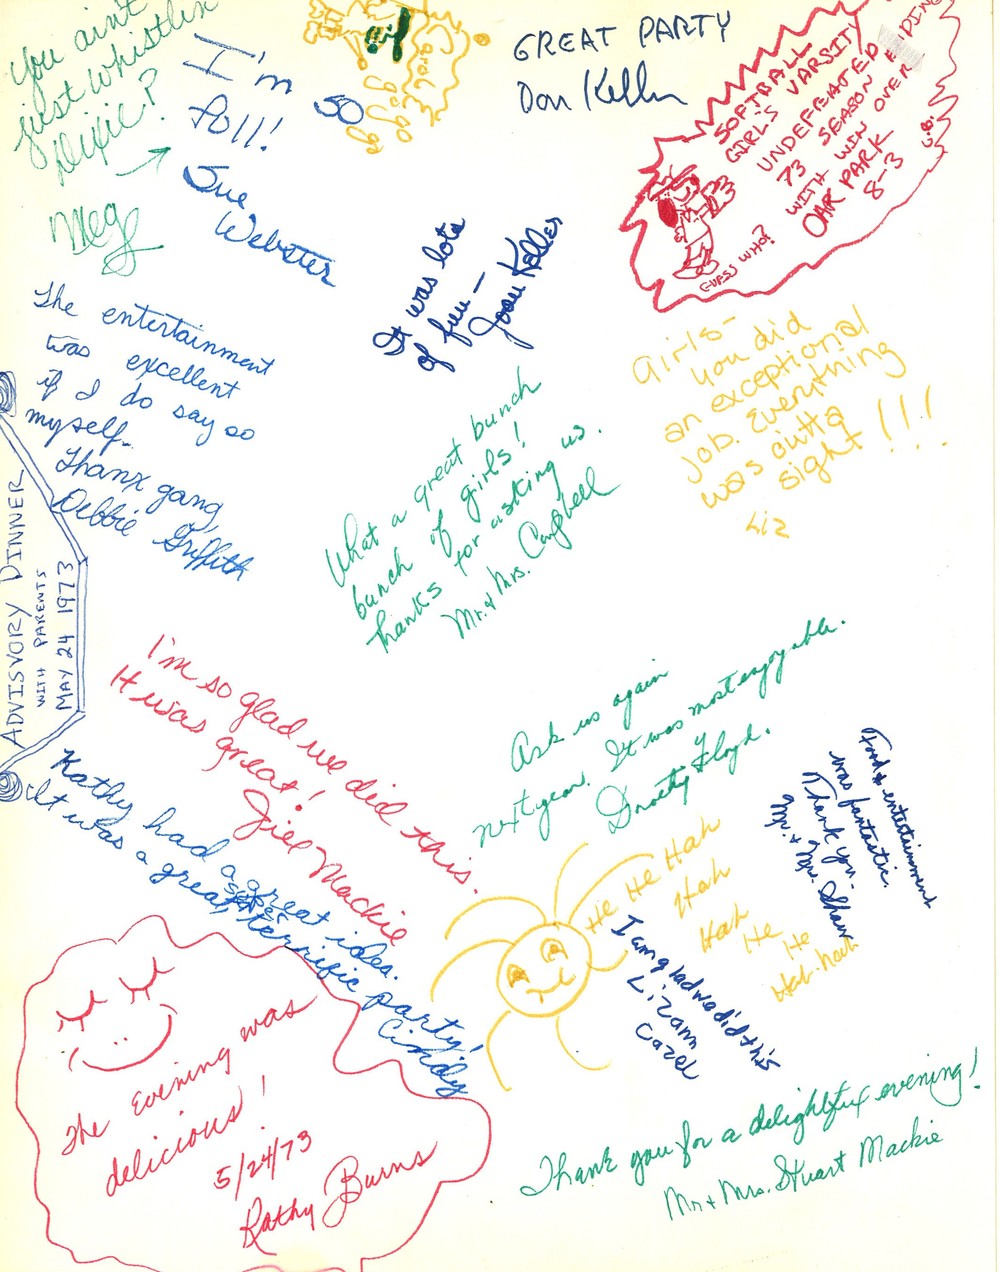 You ain't
just whistlin
dixie?
Meg
I'm
so
full!
Sue
Webster
GREAT PARTY
SOFTBALL
GIRL'S VARSITY
UNDEFEATED
73 SEASON ENDING
WITH WIN OVER
OAK PARK
8-3
GUESS WHO?
It was lots
of fun —
Joan Keller
The entertainment
was excellent
if I do say so
myself.
Thanx gang,
Debbie Griffith
Girls-
you did
an exceptional
job. Everything
was outta
sight!!!
Liz
What a great bunch
bunch of girls!
Thanks for asking us.
Mr. & Mrs. Campbell
ADVISVORY DINNER
WITH PARENTS
MAY 24 1973
I'm so glad we did this.
It was great!
Mackie
Ask us again
next year. It was most enjoyable.
Floyd.
Food & entertainment
was fantastic.
Thank you-
Mr. & Mrs. Shaw
Kathy had a great idea.
It was a great, super terrific party!
Cindy
He He Hah
Hah
Hah
He
He
Hah-hah
I am glad we did this
Lizann
The Evening was
delicious!
5/24/73
Kathy Burns
Thank you for a delightful evening!
Mr. & Mrs. Stuart Mackie